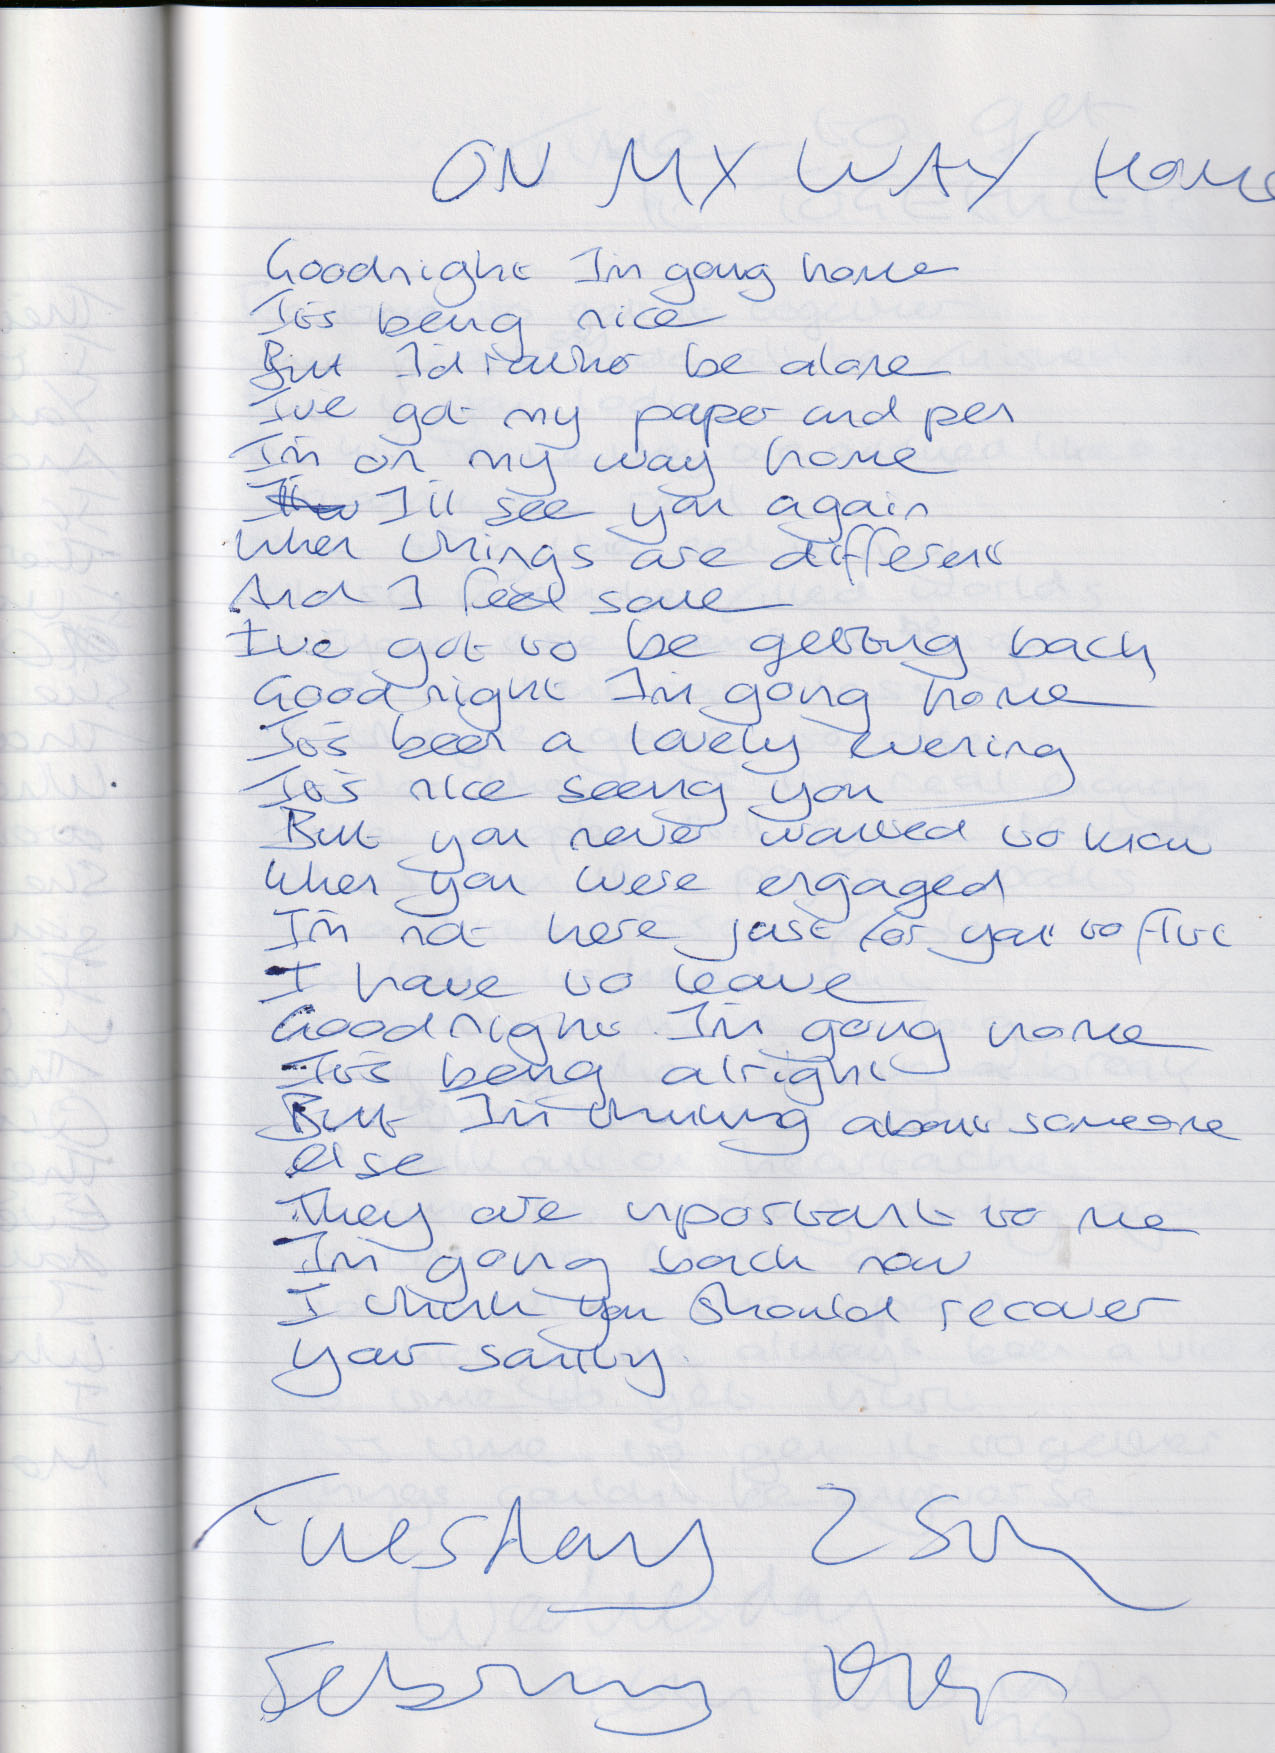 ON MY WAY HOME
Goodnight I'm going home
It's being nice
But I'd rather be alone
I've got my paper and pen
I'm on my way home
I'll see you again
When things are different
And I feel sane
I've got to be getting back
Goodnight I'm going home
It's been a lovely evening
It's nice seeing you
But you never wanted to know
When you were engaged
I'm not here just for you to flirt
I have to leave
Goodnight I'm going home
It's being alright
But I'm thinking about someone
else
They are important to me
I'm going back now
I think you should recover
your sanity.
Tuesday 25th
February